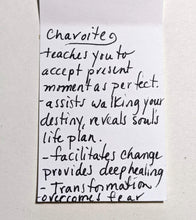 Charoite
-teaches you to
accept present
moment as perfect.
-assists walking your
destiny, reveals soul's
life plan.
-facilitates change
provides deep healing
-Transformation
overcomes fear